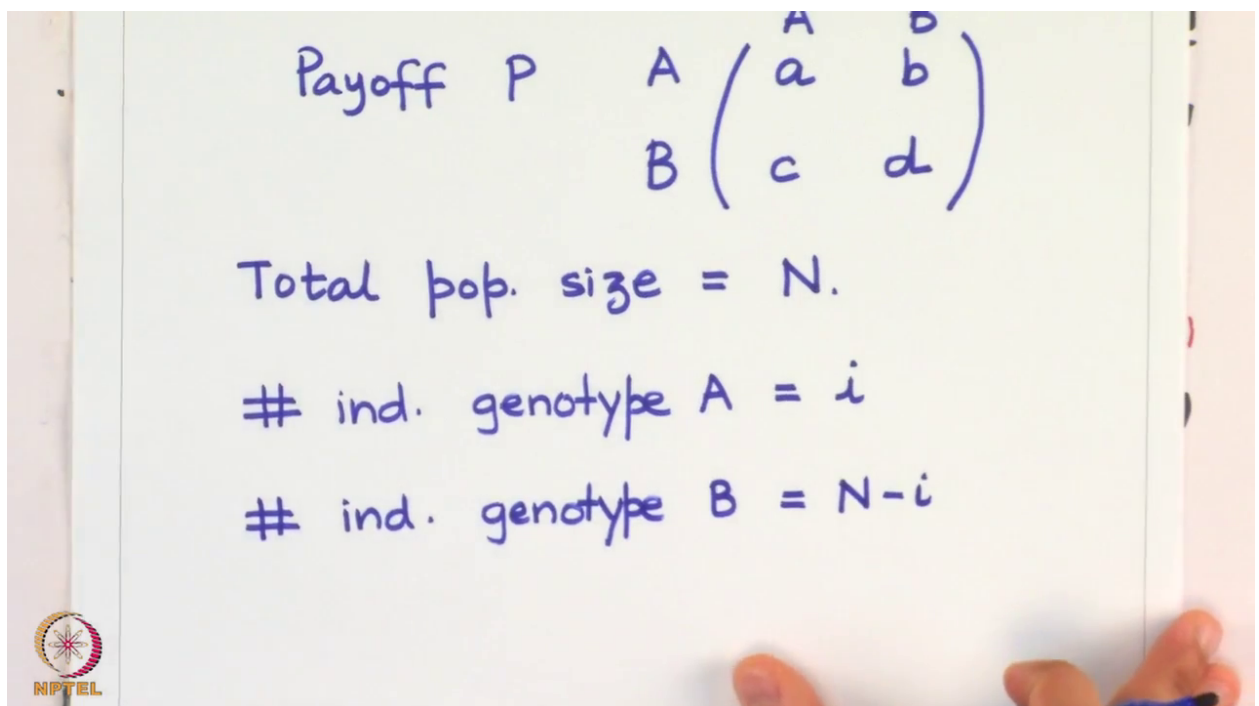 A B
Payoff P A ( a b )
B ( c d )
Total pop. size = N.
# ind. genotype A = i
# ind. genotype B = N-i
NPTEL